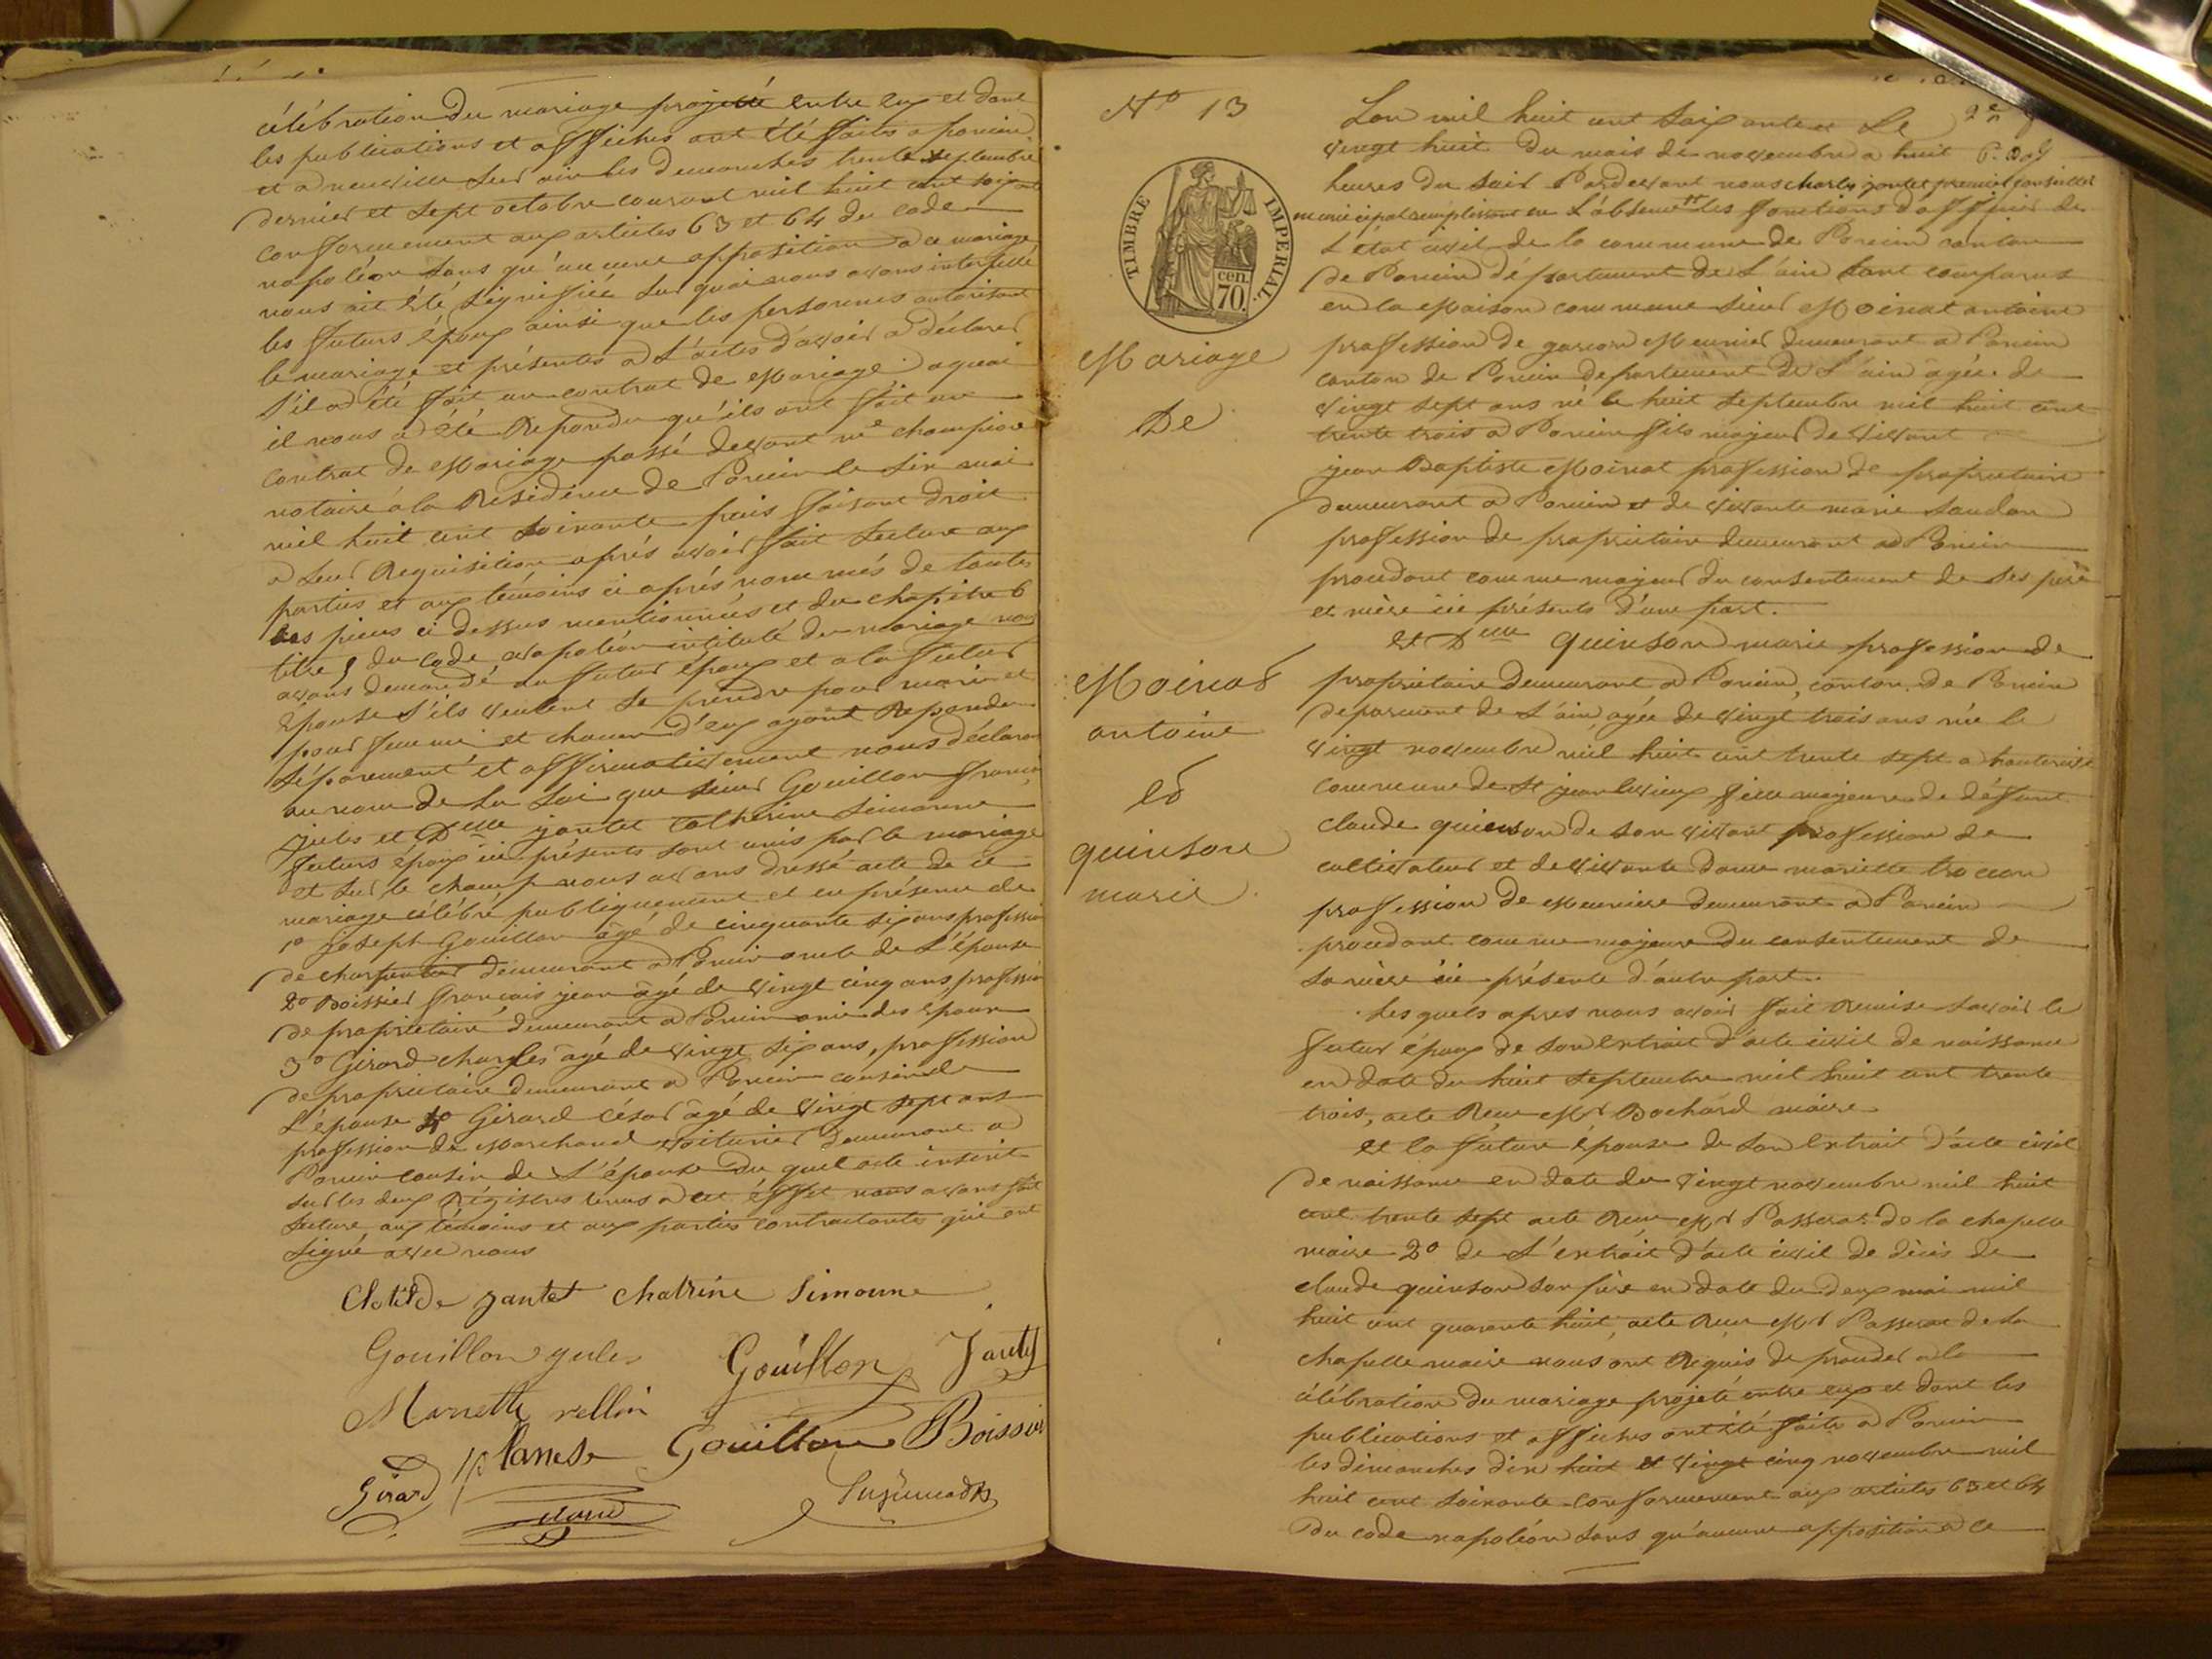 célébration du mariage projetté entre eux et dont
les publications et affiches ont été faites a poncin
et a neuville sur ain les dimanches trente septembre
dernier et sept octobre courant mil huit cent soixante
conformement aux articles 63 et 64 du code
napoléon sans qu'aucune opposition a ce mariage
nous ait été signifiée sur quoi nous avons interpellé
les futurs époux ainsi que les personnes autorisant
le mariage et présentes a l'actes d'avoir a déclarer
s'il a été fait un contrat de Mariage a quoi
il nous a été Repondu qu'ils ont fait un
contrat de Mariage passé devant me champion
notaire à la Residence de Poncin le six mai
mil huit cent soixante puis faisant droit
a leur Requisition après avoir fait lecture aux
parties et aux témoins ci après nommés de toutes
les pieces ci dessus mentionnées et du chapitre 6
titre 5 du code napoléon intitulé du mariage nous
avons demandé au futur époux et a la future
épouse s'ils veulent se prendre pour mari et
pour femme et chacun d'eux ayant Repondu
séparement et affirmativement nous déclarons
au nom de la loi que sieur Gouillon françois
jules et Delle jantet Catherine Simonne
futurs époux ici présents sont unis par le mariage
et sur le champ nous avons dressé acte de ce
mariage célébré publiquement et en présence de
1o joseph Gouillon âgé de cinquante six ans profession
de charpentier demeurant a Poncin oncle de l'épouse
2o Boissier françois jean âgé de vingt cinq ans profession
de propriétaire demeurant a Poncin ami des époux
3o Girard charles âgé de vingt six ans, profession
de propriétaire demeurant a Poncin cousin de
l'épouse 4o Girard césar âgé de vingt sept ans
profession de Marchand voiturier demeurant a
Poncin cousin de l'épouse Du quel acte inscrit
sur les deux Régistres tenus a cet éffet nous avons fait
lecture aux témoins et aux parties contractantes qui ont
signé avec nous
Clotilde jantet chatrine Simonne
Gouillon jules Gouillon Jantet
Marrette rellin
Girard Gouillon Boissier
No 13
TIMBRE IMPERIAL
cen. 70.
Mariage
De
Moinat
antoine
et
quinson
marie
Lan mil huit cent soixante et Le
vingt huit du mois de novembre a huit
heures du soir Pardevant nous charles jantet premier conseiller
municipal remplissant en l'absence les fonctions d'officier de
L'état civil de la commune de Poncin canton
de Poncin département de L'ain sont comparus
en la Maison commune sieur Moinat antoine
profession de garcon Meunier demeurant a Poncin
canton de Poncin departement de L'ain âgée de
vingt sept ans né le huit septembre mil huit cent
trente trois a Poncin fils majeur de vivant
jean Baptiste Moinat profession de propriétaire
demeurant a Poncin et de vivante marie Saudon
profession de propriétaire demeurant a Poncin
procedant comme majeur du consentement de ses père
et mère ici présents d'une part.
et Delle quinson marie profession de
propriétaire demeurant a Poncin, canton de Poncin
deparment de L'ain âgée de vingt trois ans née le
vingt novembre mil huit cent trente sept a hauterive
commune de st jean levieux fille majeure de défunt
claude quinson de son vivant profession de
cultivateur et de vivante dame mariette troccon
profession de Meunière demeurant a Poncin
procedant comme majeure du consentement de
sa mère ici présente d'autre part.
Les quels apres nous avoir fait Remise savoir le
futur époux de son Extrait d'acte civil de naissance
en date du huit septembre mil huit cent trente
trois, acte Reçu Mr Bochard maire
et la future épouse de son Extrait d'acte civil
de naissance en date du vingt novembre mil huit
cent trente sept acte Reçu Mr Passerat de la chapelle
maire 2o de L'extrait d'acte civil de décès de
claude quinson son père en date du deux mai mil
huit cent quarante huit, acte Reçu Mr Passerat de la
chapelle maire nous ont Réquis de proceder a la
célébration du mariage projeté entre eux et dont les
publications et affiches ont été faites a Poncin
les dimanches dix huit et vingt cinq novembre mil
huit cent soixante conformement aux articles 63 et 64
du code napoléon sans qu'aucune opposition a ce